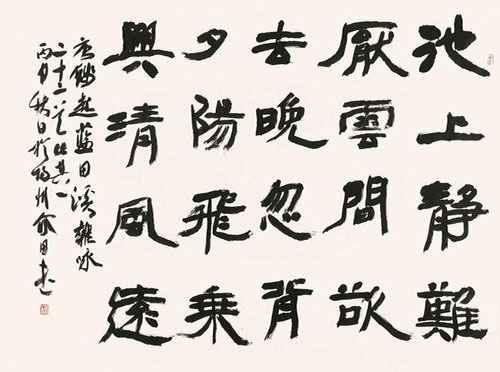 池上靜難
厭雲間欲
去晚忽背
夕陽飛乘
興清風遠
唐錢起藍田溪雜咏
二十二首其一
秋日於州書